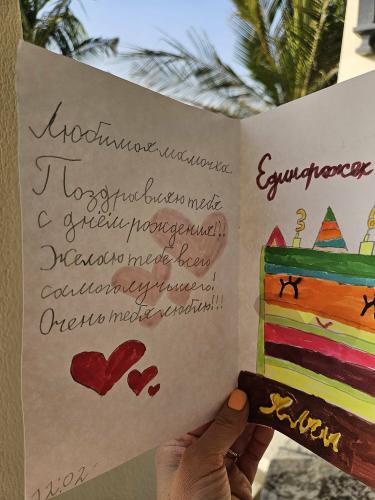 Любимая мамочка
Поздравляю тебя
с днём рождения!!
Желаю тебе всего
самого лучшего!
Очень тебя люблю!!!
12:02
Единорожек
3